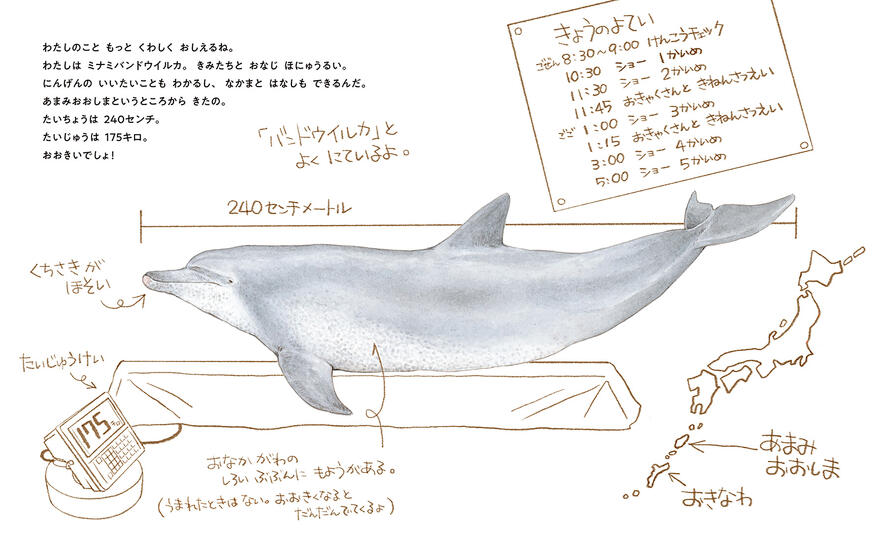 わたしのこと もっと くわしく おしえるね。
わたしは ミナミバンドウイルカ。 きみたちと おなじ ほにゅうるい。
にんげんの いいたいことも わかるし、 なかまと はなしも できるんだ。
あまみおおしまというところから きたの。
たいちょうは 240センチ。
たいじゅうは 175キロ。
おおきいでしょ!
きょうのよてい
ごぜん 8:30〜9:00 けんこうチェック
10:30 ショー 1かいめ
11:30 ショー 2かいめ
11:45 おきゃくさんと きねんさつえい
ごご 1:00 ショー 3かいめ
1:15 おきゃくさんと きねんさつえい
3:00 ショー 4かいめ
5:00 ショー 5かいめ
「バンドウイルカ」と
よく にているよ。
240センチメートル
くちさきが
ほそい
たいじゅうけい
175キロ
おなかがわの
しろい ぶぶんに もようがある。
(うまれたときはない。おおきくなると
だんだんでてくるよ)
あまみ
おおしま
おきなわ